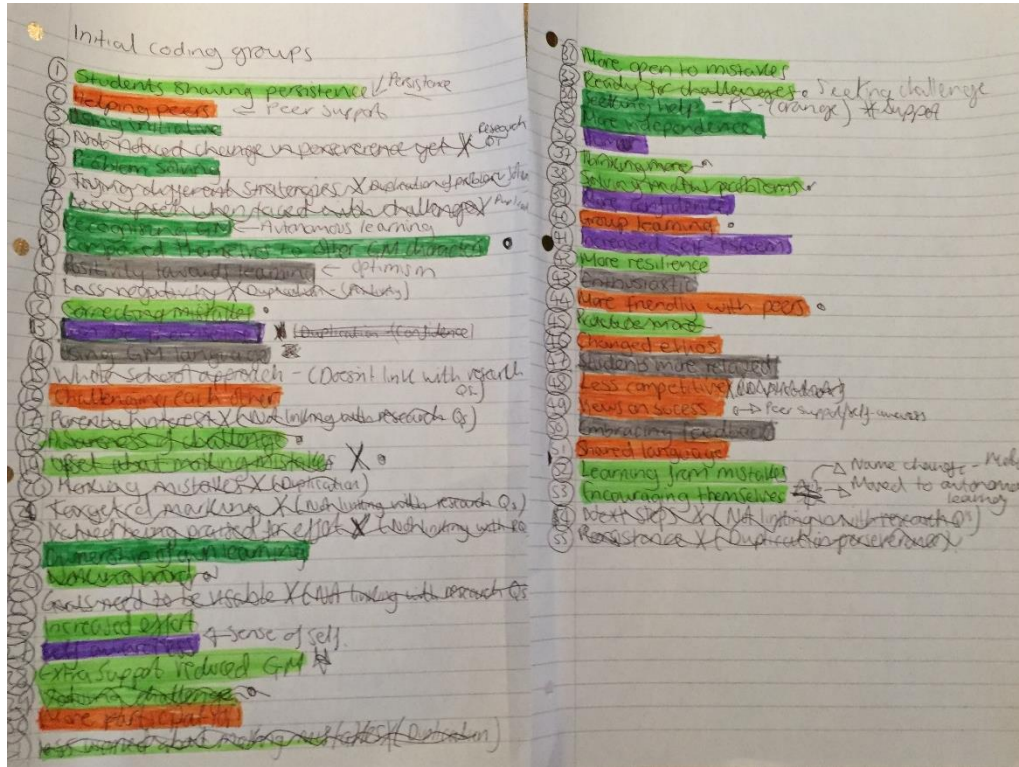 Initial coding groups
1 Students showing persistence ← Persistance
2 Helping peers ← Peer support
3 Using initiative
4 Not noticed change in perseverence yet X Research
5 Problem solving
6 Trying different strategies X Duplication of problem
7 Less upset when faced with challenge X
8 Recognising GM ← Autonomous learning
Compared themselves to other GM characters
Positivity towards learning ← optimism
Less negativity X Duplication (Positivity)
Correcting mistakes
(Duplication (Confidence)
Using GM language
Whole school approach - (Doesn't link with research Qs)
Challenging each other
Parental interest X (Not linking with research Qs)
Awareness of challenge
Upset about making mistakes X
mistakes X (Duplication)
Targeted marking X (Not linking with research Qs)
praised for effort X (Not linking with RQ
Ownership of own learning
Working hard
Goals need to be visable X (Not linking with research Qs
Increased effort
Self awareness ← Sense of self.
Extra support reduced GM
challenge
More participation
Less worried about making mistakes X (Duplication)
More open to mistakes
Ready for challenges. Seeking challenge
Seeking help - PS - (orange) * support
35 More independence
36
37 Thinking more
38 Solving maths problems
39 More confidence
40 Group learning
41 Increased self esteem
42 More resilience
43 Enthusiastic
44 More friendly with peers
45 Practice more
46 Changed ethos
47 Students more relaxed
48 Less competitive
49 Views on sucess → Peer support/self-awarness
50 Embracing feedback
51 Shared language
52 Learning from mistakes → Name change -
53 Encouraging themselves → Moved to autonomous learning
54 Next steps X (Not linking with research Qs)
55 X (Duplication perseverence)